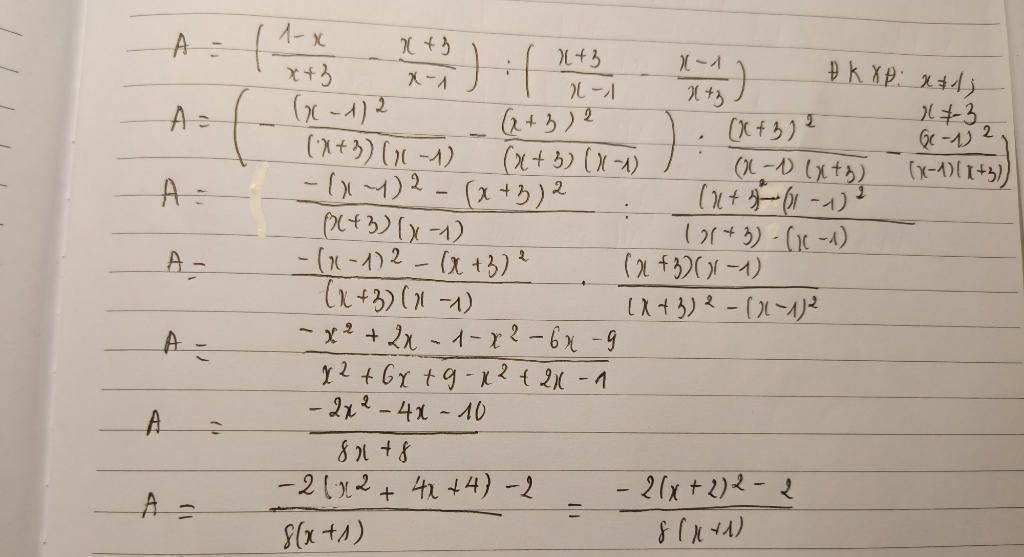 A = ( (1-x)/(x+3) - (x+3)/(x-1) ) : ( (x+3)/(x-1) - (x-1)/(x+3) ) ĐKXĐ: x≠1; x≠-3
A = ( - (x-1)²/((x+3)(x-1)) - (x+3)²/((x+3)(x-1)) ) : (x+3)²/((x-1)(x+3)) - (x-1)²/((x-1)(x+3)) )
A = (-(x-1)² - (x+3)²)/((x+3)(x-1)) : ((x+3)² - (x-1)²)/((x+3)-(x-1))
A = (-(x-1)² - (x+3)²)/((x+3)(x-1)) . ((x+3)(x-1))/((x+3)² - (x-1)²)
A = (-x² + 2x - 1 - x² - 6x - 9)/(x² + 6x + 9 - x² + 2x - 1)
A = (-2x² - 4x - 10)/(8x + 8)
A = (-2(x² + 4x + 4) - 2)/(8(x+1)) = (-2(x+2)² - 2)/(8(x+1))